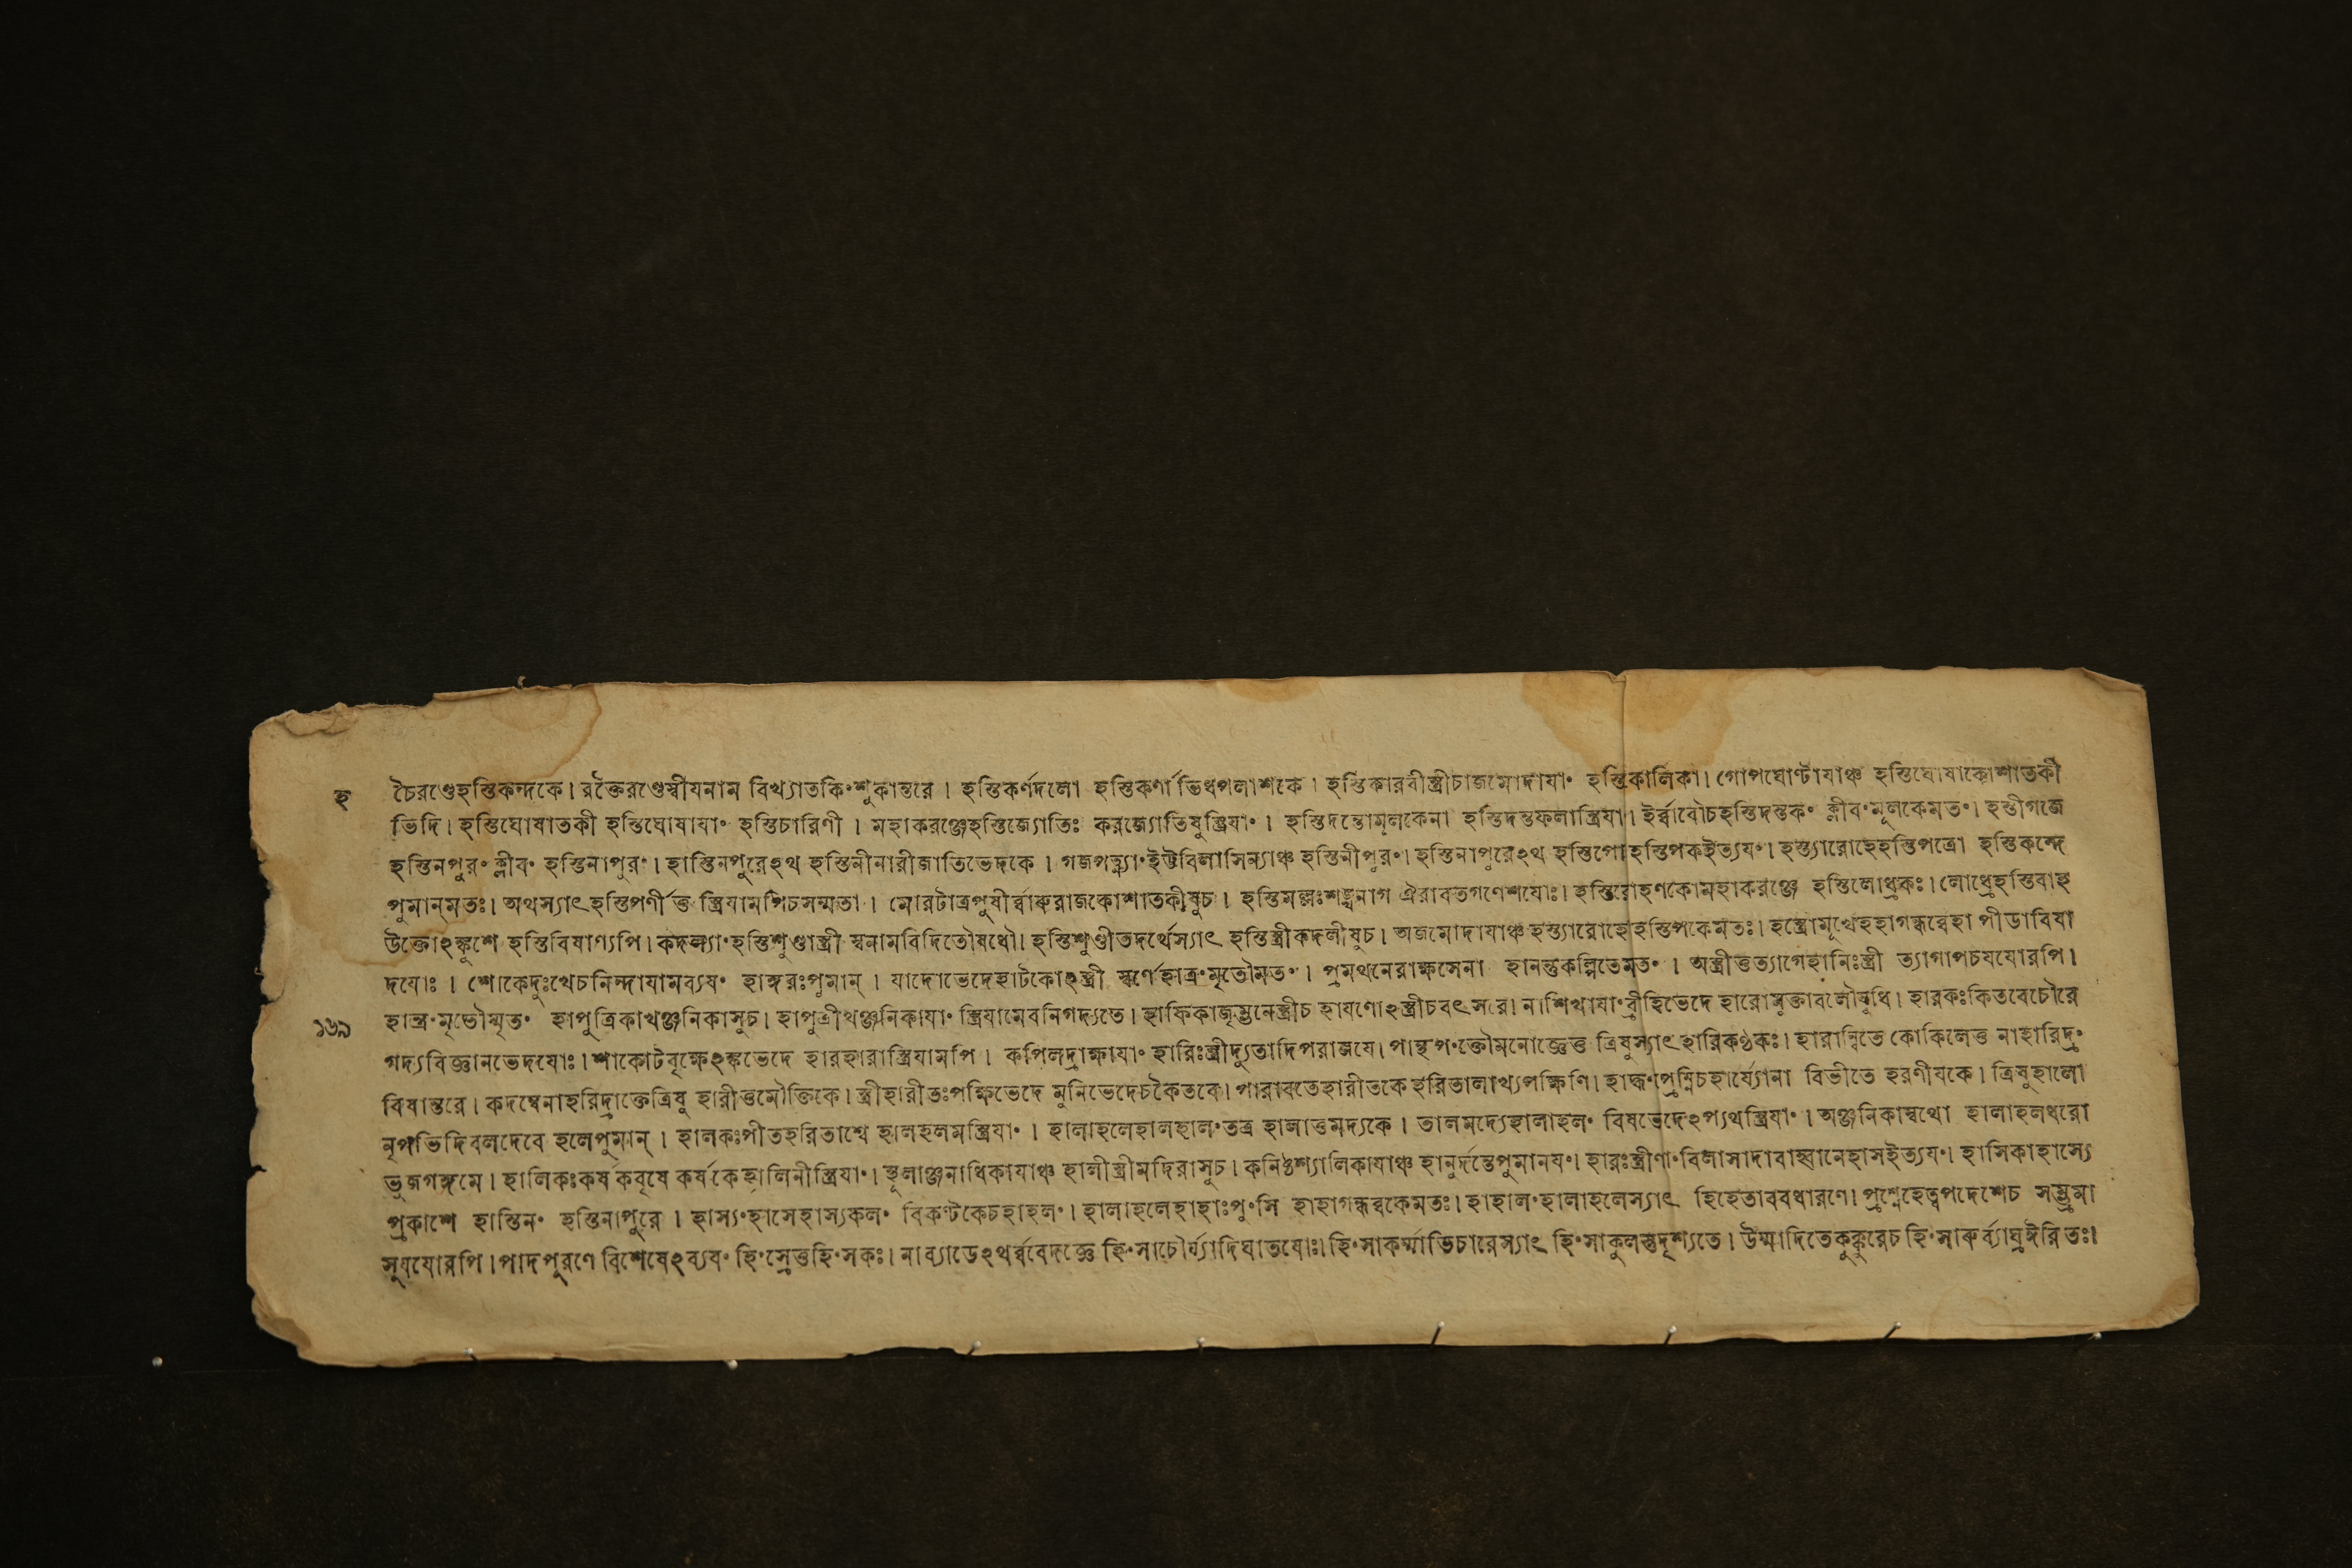 হ
চৈরণ্ডেহস্তিকন্দকে। রক্তৈরণ্ডেস্বীযনাম বিখ্যাতকিংশুকান্তরে। হস্তিকর্ণদলো হস্তিকর্ণাভিধপলাশকে। হস্তিকারবীস্ত্রীচাজমোদাযাং হস্তিকালিকা। গোপঘোণ্টাযাঞ্চ হস্তিঘোষাকোশাতকী
ভিদি। হস্তিঘোষাতকী হস্তিঘোষাযাং হস্তিচারিণী। মহাকরঞ্জেহস্তিজ্যোতিঃ করজ্যোতিষুস্ত্রিযাং। হস্তিদন্তোমূলকেনা হস্তিদন্তফলাস্ত্রিযা। ইর্ব্বাবৌচহস্তিদন্তকং ক্লীবংমূলকেমতং। হস্তীগজে
হস্তিনপুরং ক্লীবং হস্তিনাপুরং। হাস্তিনপুরেঽথ হস্তিনীনারীজাতিভেদকে। গজপত্ন্যাংহট্টবিলাসিন্যাঞ্চ হস্তিনীপুরং। হস্তিনাপুরেঽথ হস্তিগোহস্তিপকইত্যযং। হস্ত্যারোহেহস্তিপত্রো হস্তিকন্দে
পুমান্মতঃ। অথস্যাৎহস্তিপর্ণীত্ত স্ত্রিযামপিচসম্মতা। মোরটাত্রপুষীর্ব্বারুরাজকোশাতকীষুচ। হস্তিমল্লঃশঙ্খনাগ ঐরাবতগণেশযোঃ। হস্তিরোহণকোমহাকরঞ্জে হস্তিলোধ্রকঃ। লোধ্রেহস্তিবাহ
উক্তোঽঙ্কুশে হস্তিবিষাণ্যপি। কদল্যাংহস্তিশুণ্ডাস্ত্রী স্বনামবিদিতৌষধৌ। হস্তিশুণ্ডীতদর্থেস্যাৎ হস্তিস্ত্রীকদলীষুচ। অজমোদাযাঞ্চ হস্ত্যারোহোহস্তিপকেমতঃ। হস্ত্রোমূর্খেহহাগন্ধর্ব্বেহা পীডাবিষা
দযোঃ। শোকেদুঃখেচনিন্দাযামব্যযং হাঙ্গরঃপুমান্। যাদোভেদেহাটকোঽস্ত্রী স্বর্ণেহাত্রংমৃতৌমতং। প্রমথনেরাক্ষসেনা হানন্তুকল্পিতেমতং। অস্ত্রীত্তত্যাগেহানিঃস্ত্রী ত্যাগাপচযযোরপি।
১৬৯
হান্ত্রংমৃতৌস্মৃতং হাপুত্রিকাখঞ্জনিকাসুচ। হাপুত্রীখঞ্জনিকাযাং স্ত্রিযামেবনিগদ্যতে। হাফিকাজৃম্ভনেস্ত্রীচ হাযণোঽস্ত্রীচবৎসরে। নাশিখাযাংব্রীহিভেদে হারোমুক্তাবলৌযুধি। হারকঃকিতবেচৌরে
গদ্যবিজ্ঞানভেদযোঃ। শাকোটবৃক্ষেঽঙ্কভেদে হারহারাস্ত্রিযামপি। কপিলদ্রাক্ষাযাং হারিঃস্ত্রীদ্যুতাদিপরাজযে। পান্থপংক্তৌমনোজ্ঞেত্ত ত্রিষুস্যাৎহারিকণ্ঠকঃ। হারান্বিতে কোকিলেত্ত নাহারিদ্রং
বিষান্তরে। কদম্বেনাহরিদ্রাক্তেত্রিষু হারীত্তমৌক্তিকে। স্ত্রীহারীতঃপক্ষিভেদে মুনিভেদেচকৈতকে। পারাবতেহারীতকে হরিতালাখ্যপক্ষিণি। হার্দ্দংপ্রেম্নিচহার্য্যোনা বিভীতে হরণীযকে। ত্রিষুহালো
নৃপভিদিবলদেবে হলেপুমান্। হালকঃপীতহরিতাশ্বে হালহলমস্ত্রিযাং। হালাহলেহালহালংতত্র হালাত্তমদ্যকে। তালমদ্যেহালাহলং বিষভেদেঽপ্যথস্ত্রিযাং। অঞ্জনিকাস্বথো হালাহলধরো
ভুজগঙ্গমে। হালিকঃকর্ষকবৃষে কর্ষকেহালিনীস্ত্রিযাং। স্থূলাঞ্জনাধিকাযাঞ্চ হালীস্ত্রীমদিরাসুচ। কনিষ্ঠশ্যালিকাযাঞ্চ হানুর্দন্তেপুমানযং। হারঃস্ত্রীণাংবিলাসাদাবাহ্বানেহাসইত্যযং। হাসিকাহাস্যে
প্রকাশে হাস্তিনং হস্তিনাপুরে। হাস্যংহাসেহাস্যকলং বিকণ্টকেচহাহলং। হালাহলেহাহাঃপুংসি হাহাগন্ধর্ব্বকেমতঃ। হাহালংহালাহলেস্যাৎ হিহেতাববধারণে। প্রশ্নেহেত্বপদেশেচ সম্ভ্রমা
সূযযোরপি। পাদপূরণে বিশেষেঽব্যযং হিংস্রেত্তহিংসকঃ। নাব্যাডেঽথর্ব্ববেদজ্ঞে হিংসাচৌর্য্যাদিঘাতযোঃ। হিংসাকর্ম্মাভিচারেস্যাৎ হিংসাকুলন্তুদৃশ্যতে। উন্মাদিতেকুক্কুরেচ হিংসারুর্ব্যাঘ্রঈরিতঃ।